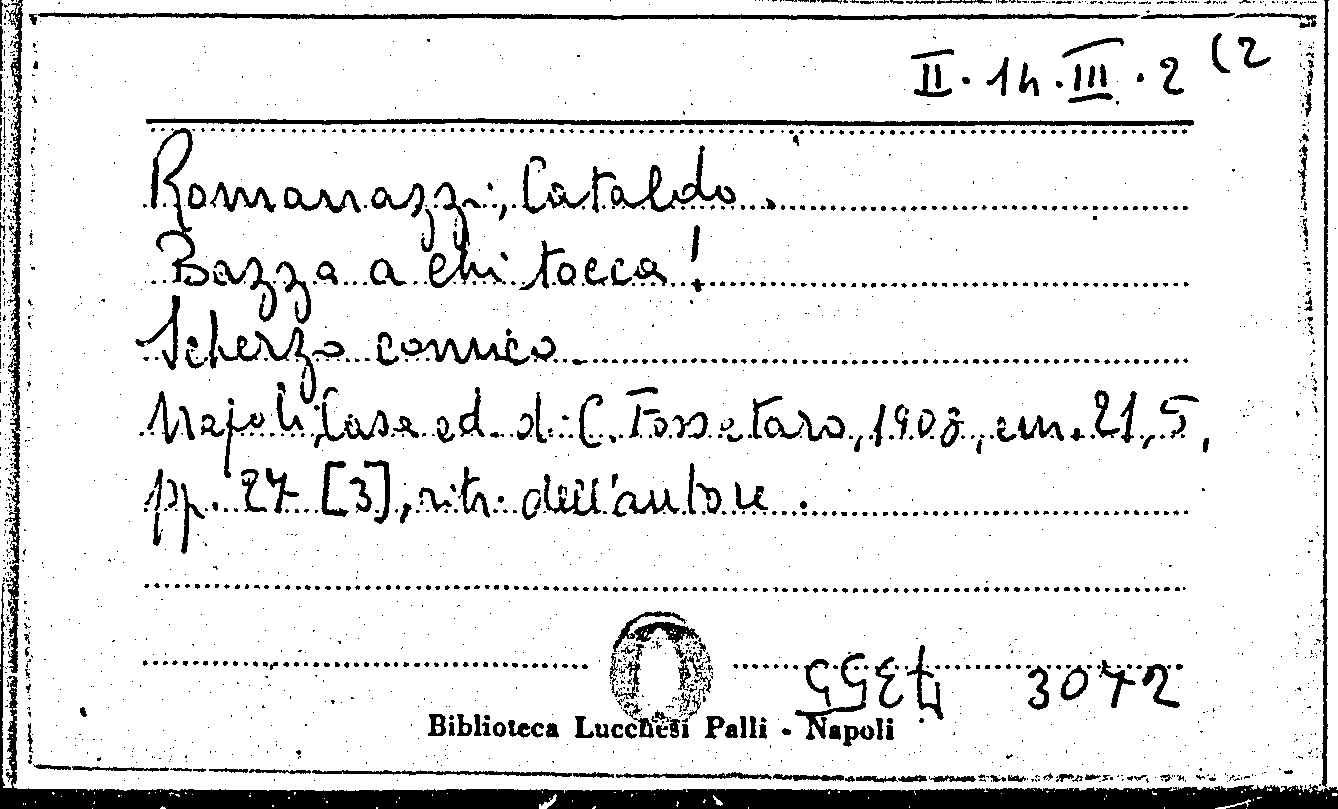 II. 14. III. 2 (2
Romanazzi, Cataldo.
Bazza a chi tocca!
Scherzo comico.
Napoli, Casa ed. di C. Tossetaro, 1908, cm. 21,5,
pp. 27 [3], ritr. dell'autore.
3072
Biblioteca Lucchesi Palli - Napoli